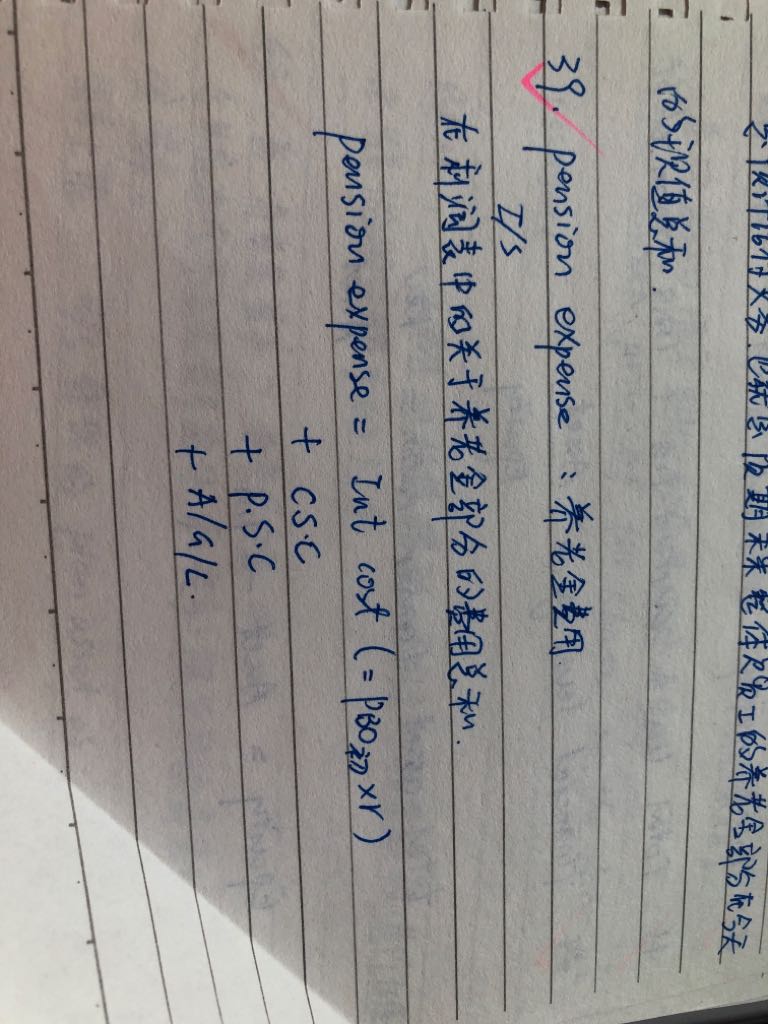 支付义务.也就是预期未来整体员工的养老金部分在今天
的折现值总和.
39. pension expense : 养老金费用.
I/S
在利润表中的关于养老金部分的费用总和.
pension expense = Int cost (= PBO初 × r)
+ C.S.C
+ P.S.C
+ A/G/L.